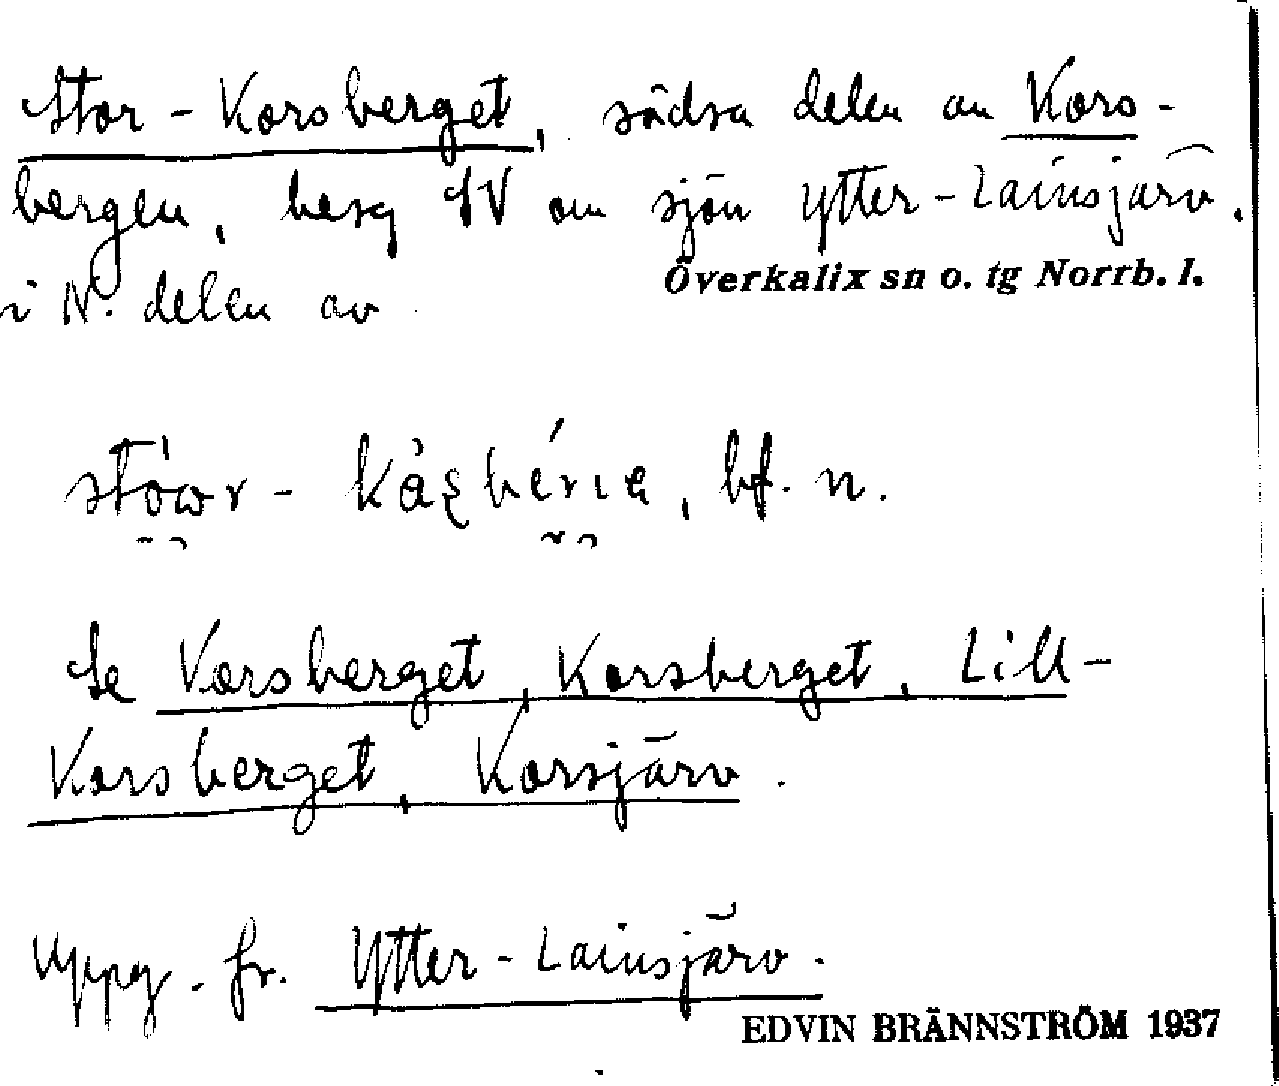 Stor-Korsberget, södra delen av Kors-
bergen, berg SV om sjön Ytter-Lainsjärv.
i N. delen av
Överkalix sn o. tg Norrb. l.
bf. n.
Se Korsberget, Korsberget, Lill-
Korsberget, Korsjärv.
Uppg. fr. Ytter-Lainsjärv.
EDVIN BRÄNNSTRÖM 1937